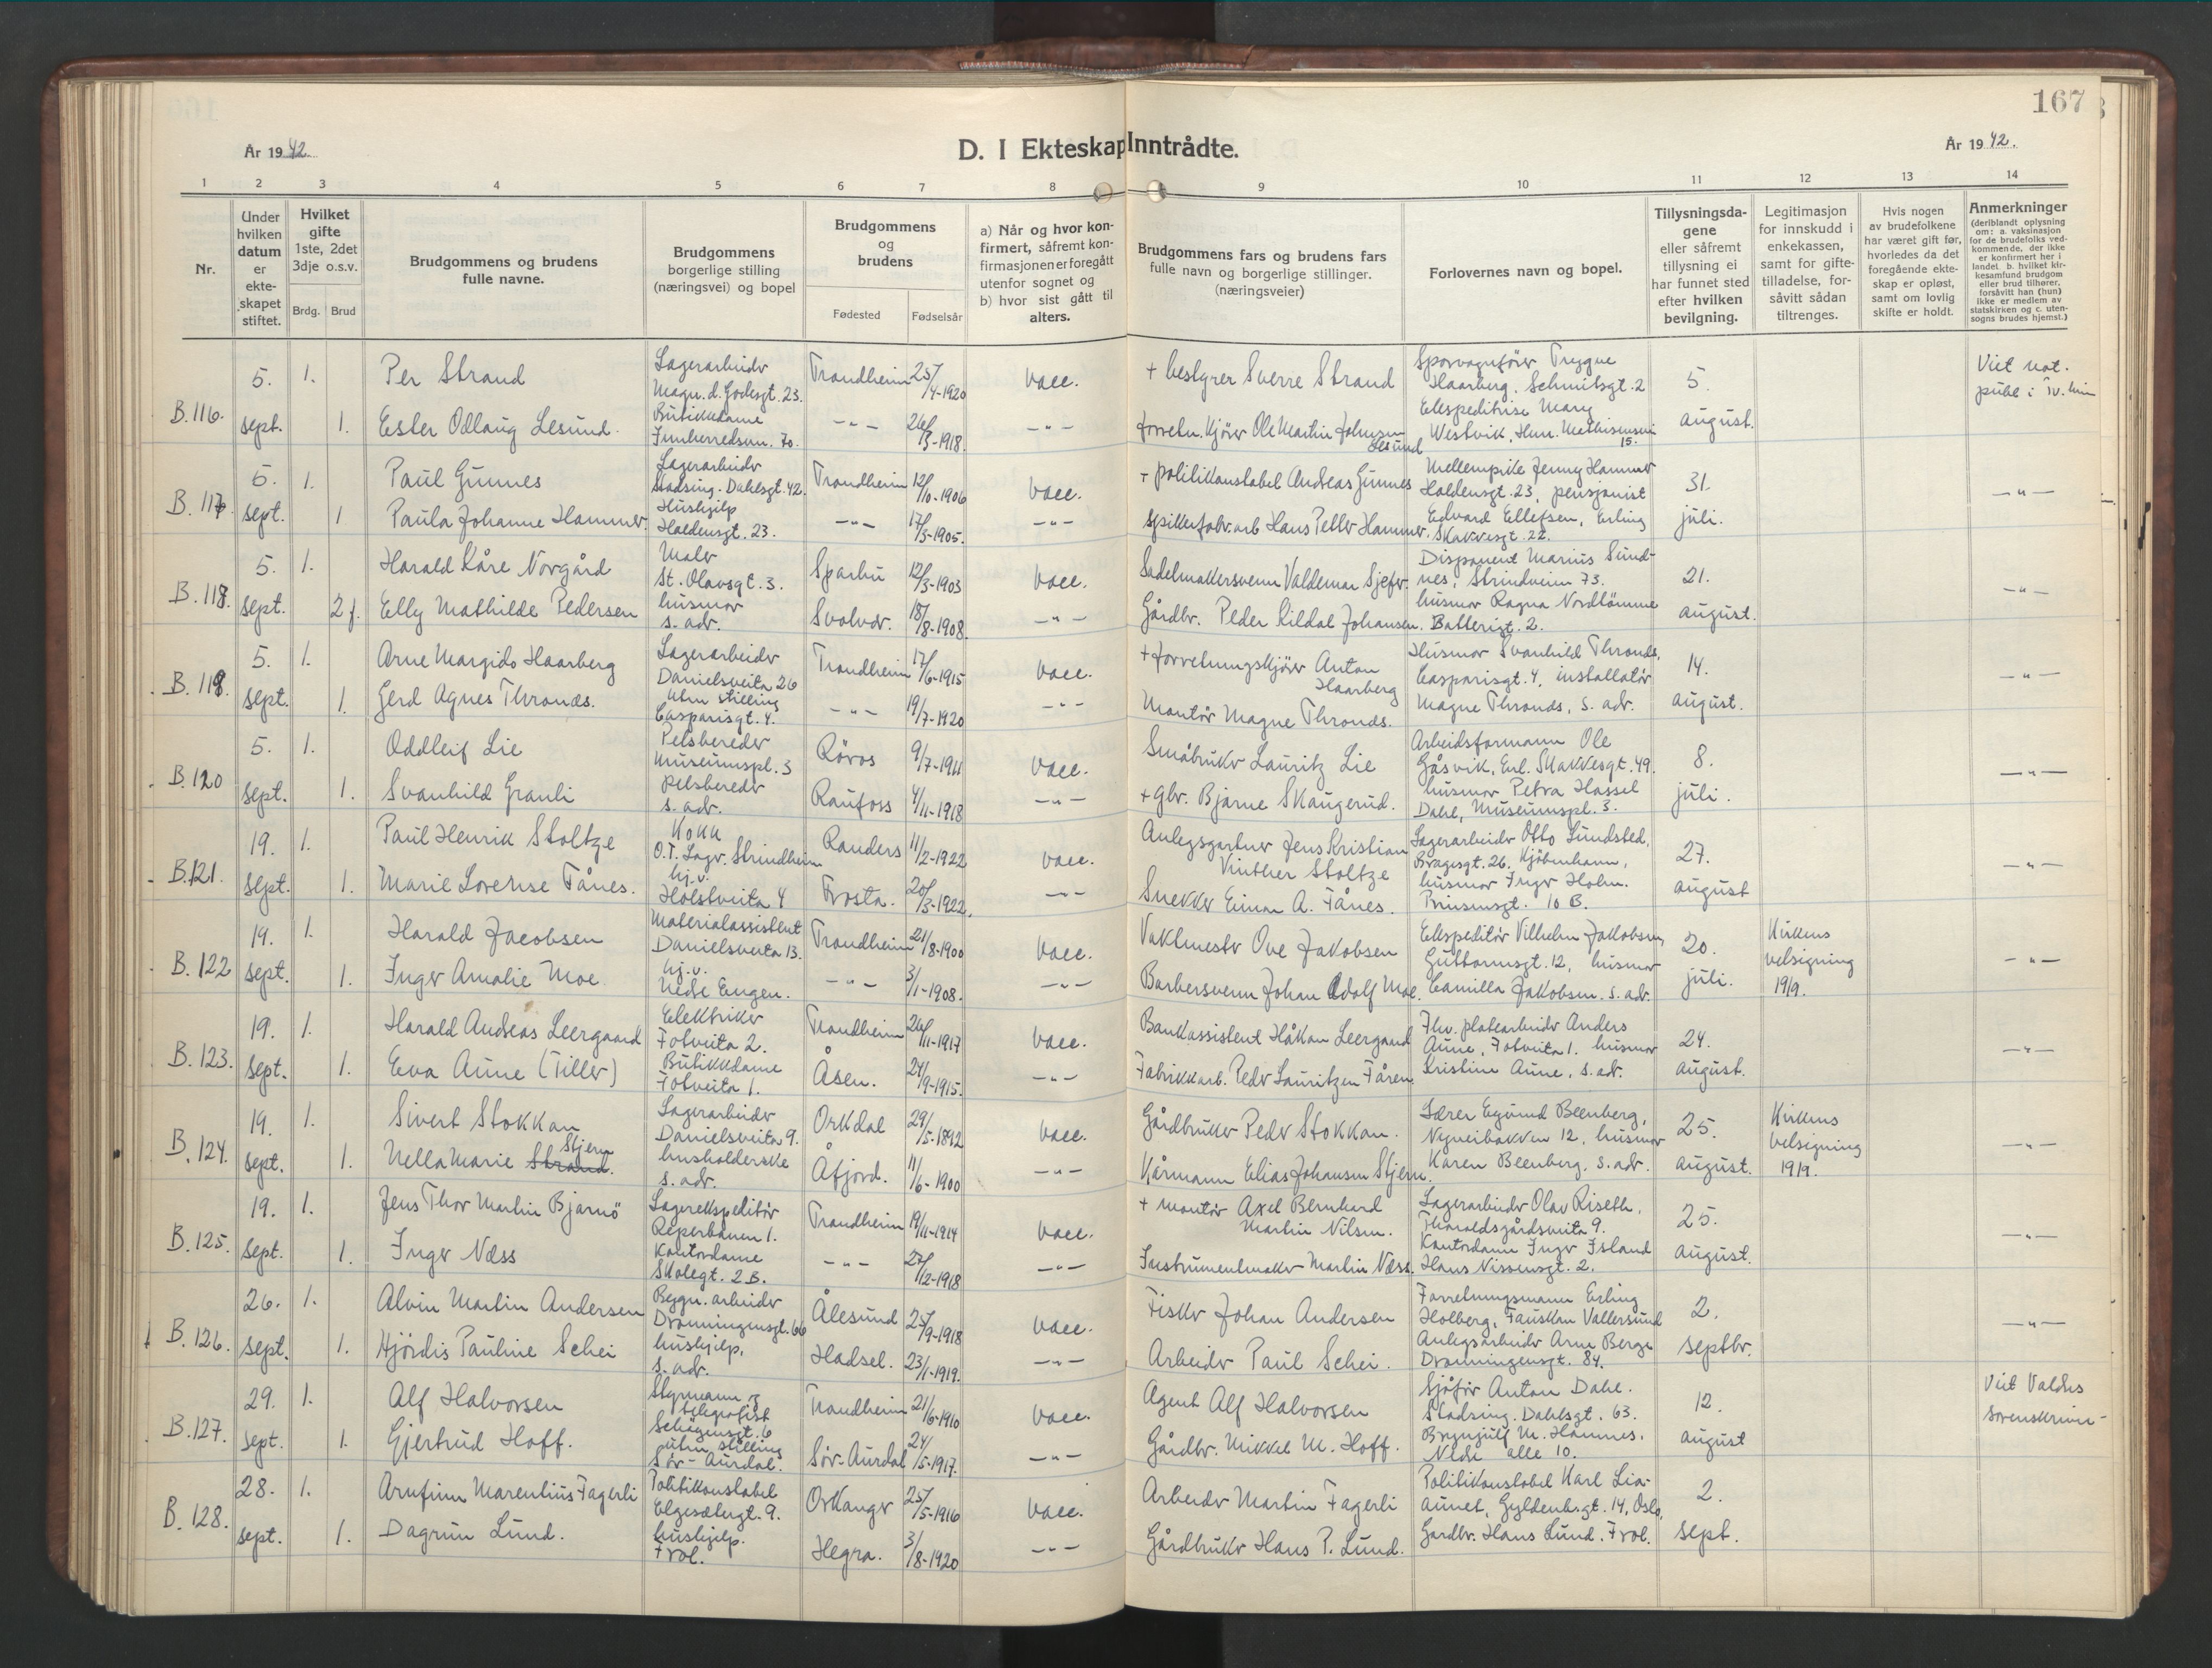 167
År 1942.
D. I Ekteskap Inntrådte.
År 1942.
1 2 3 4 5 6 7 8 9 10 11 12 13 14
Nr.
Under hvilken datum er ekteskapet stiftet.
Hvilket gifte 1ste, 2det 3dje o.s.v.
Brdg. Brud
Brudgommens og brudens fulle navne.
Brudgommens borgerlige stilling (næringsvei) og bopel
Brudgommens og brudens
Fødested Fødselsår
a) Når og hvor konfirmert, såfremt konfirmasjonen er foregått utenfor sognet og b) hvor sist gått til alters.
Brudgommens fars og brudens fars fulle navn og borgerlige stillinger. (næringsveier)
Forlovernes navn og bopel.
Tillysningsdagene eller såfremt tillysning ei har funnet sted efter hvilken bevilgning.
Legitimasjon for innskudd i enkekassen, samt for giftetilladelse, forsåvitt sådan tiltrenges.
Hvis nogen av brudefolkene har været gift før, hvorledes da det foregående ekteskap er opløst, samt om lovlig skifte er holdt.
Anmerkninger (deriblandt oplysning om: a. vaksinasjon for de brudefolks vedkommende, der ikke er konfirmert her i landet b. hvilket kirkesamfund brudgom eller brud tilhører, forsåvitt han (hun) ikke er medlem av statskirken og c. utensogns brudes hjemst.)
B. 116. 5. sept. 1. Per Strand Lagerarbeider Magn. d. Godesgt. 23. Trondheim 25/4-1920 vacc. + bestyrer Sverre Strand Sporvognfører Trygve Haarberg, Schmitsgt. 2 5. august.
1. Ester Odlaug Lesund. Butikkdame Innherredsvn. 70. -"- 26/3-1918. -"- forretn. kjører Ole Martin Johnsen Lesund Ekspeditrise Mary Westvik, Hm. Mathisensvei 15.
B. 117. 5. sept. 1. Paul Gunnes Lagerarbeider Stadsing. Dahlsgt. 42. Trondheim 12/10-1906 vacc. + politikonstabel Andreas Gunnes Haldensgt. 23, pensjonist 31. juli. -"-
1 Paula Johanne Hammer. Hushjelp Haldensgt. 23. -"- 17/3-1905. -"- spikerfabr.arb Hans Petter Hammer. Edvard Ellefsen, Erling Skakkesgt. 22.
B. 118. 5. sept. 1. Harald Kåre Norgård Maler St. Olavsgt. 3. Sparbu 12/3-1903 vacc. Disponent Marius Sundnes, Strindveien 73. 21. august. -"-
2 f. Elly Mathilde Pedersen husmor s. adr. Svolvær. 18/8-1908. -"- Gårdbr. Peder Kildal Johansen. husmor Ragna Nordtømme Batterigt. 2.
B. 119. 5. sept. 1. Arne Margido Haarberg Lagerarbeider Danielsveita 26 Trondheim 17/6-1915 vacc. + forretningskjører Anton Haarberg Husmor Svanhild Thronds, Casparisgt. 4, installatør 14. august. -"-
1. Gerd Agnes Thronds. uten stilling Casparisgt. 4. -"- 19/7-1920 -"- Montør Magne Thronds. Magne Thronds, s. adr.
B. 120 5. sept. 1. Oddleif Lie Pelsbereder Museumspl. 3 Röros 9/7-1911 vacc. Småbruker Lauritz Lie Arbeidsformann Ole Gåsvik, Erl. Skakkesgt. 49. 8. juli. -"-
1. Svanhild Granli pelsbereder s. adr. Raufoss 4/11-1918 -"- + gbr. Bjarne Skaugerud. husmor Petra Hassel Dahl, Museumspl. 3.
B. 121. 19. sept. 1. Paul Henrik Stoltze Kokk O.T. Lager. Strindheim Randers 11/2-1922 vacc. Anlegsgartner Jens Kristian Vinther Stoltze Lagerarbeider Otto Lundsted, Bragesgt. 26. Kjøbenhavn, 27. august -"-
1. Marie Lovense Fånes. hj.v. Holstveita 4 Frosta. 20/3-1922. -"- Snekker Einar A. Fånes. husmor Inger Holm. Prinsensgt. 10 B.
B. 122 19. sept. 1. Harald Jacobsen Materialassistent Danielsveita 13. Trondheim 21/8-1900 vacc. Vaktmester Ove Jakobsen Ekspeditør Vilhelm Jakobsen, Guttormsgt. 12, husmor 20. juli. Kirkens velsigning 19/9. -"-
1. Inger Amalie Moe hj.v. Nedre Engen. -"- 3/1-1908. -"- Barbersvenn Johan Adolf Moe. Camilla Jakobsen. s. adr.
B. 123. 19. sept. 1. Harald Andreas Leergaard Elektriker Fotveita 2. Trondheim 26/11-1917 vacc. Bankassistent Håkon Leergaard Fhv. platearbeider Anders Aune, Fotveita 1. husmor 24. august. -"-
1. Eva Aune (Tiller) Butikkdame Fotveita 1. Åsen. 24/9-1915. -"- Fabrikkarb. Peder Lauritzen Fåren. Kristine Aune, s. adr.
B. 124. 19. sept. 1. Sivert Stokkan Lagerarbeider Danielsveita 9. Orkdal 29/5-1892 vacc. Gårdbruker Peder Stokkan. Lærer Eyvind Beenberg, 25. august. Kirkens velsigning 19/9. -"-
1. Nella Marie Strand. Stjern husholderske s. adr. Åfjord. 11/6-1900 -"- Kårmann Elias Johansen Stjern. Karen Beenberg, s. adr.
B. 125. 19. sept. 1. Jens Thor Martin Bjarnö Lagerekspeditør Reperbanen 1. Trondheim 19/11-1914 vacc. + montør Axel Bernhard Martin Nilsen. Lagerarbeider Olav Riseth, Thoraldsgårdsveita 9. 25. august. -"-
1. Inger Næss Kontordame Skolegt. 2 B. -"- 27/12-1918 -"- Instrumentmaker Martin Næss. Kontordame Inger Island Hans Nissensgt. 2.
B. 126. 26. sept. 1. Alvin Martin Andersen Bygn. arbeider Dronningensgt. 66 Ålesund 25/9-1918 vacc. Fisker Johan Andersen Forretningsmann Erling Holberg, Fausken Vallersund 2. septbr. -"-
1. Hjördis Pauline Schei hushjelp, s. adr. Hadsel. 23/1-1919. -"- Arbeider Paul Schei. Anlegsarbeider Arne Berge Dronningensgt. 84.
B. 127. 29. sept. 1. Alf Halvorsen Styrmann og telegrafist Trondheim 21/6-1910 vacc. Agent Alf Halvorsen Sjåfør Anton Dahl. Stadsing. Dahlsgt. 63. 12. august Viet Valdres sorenskriver-
1. Gjertrud Hoff. uten stilling Sör-Aurdal. Sör-Aurdal 24/5-1917. -"- Gårdbr. Mikkel M. Hoff. Brynjulf M. Hamnes, Nedre alle 10.
B. 128. 28. sept. 1. Arnfinn Marentius Fagerli Politikonstabel Elgesætergt. 9. Orkanger 25/5-1916 vacc. Arbeider Martin Fagerli Politikonstabel Karl Liaaunet, Gyldenl.gt. 14, Oslo, 2. sept.
1. Dagrun Lund. hushjelp. Frol. Hegra. 3/8-1920 -"- Gårdbruker Hans P. Lund. Gardbr. Hans Lund. Frol.